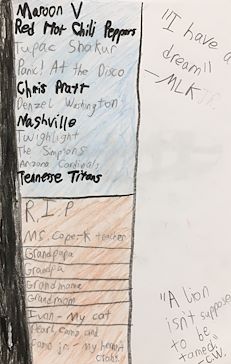 Maroon V
Red Hot Chili Peppers
Tupac Shakur
Panic! At the Disco
Chris Pratt
Denzel Washington
Nashville
Twighlight
The Simpsons
Arizona Cardinals
Tennese Titans
R.I.P
Ms. Cope-K teacher
Grandpapa
Grandpa
Grandmama
Grandmom
Ivan - My cat
Pearl, Camo, and
Camo jr. - my hermit
crabs
"I have a
dream!!
-MLK JR.
"A lion
isn't suppose
to be
tamed."